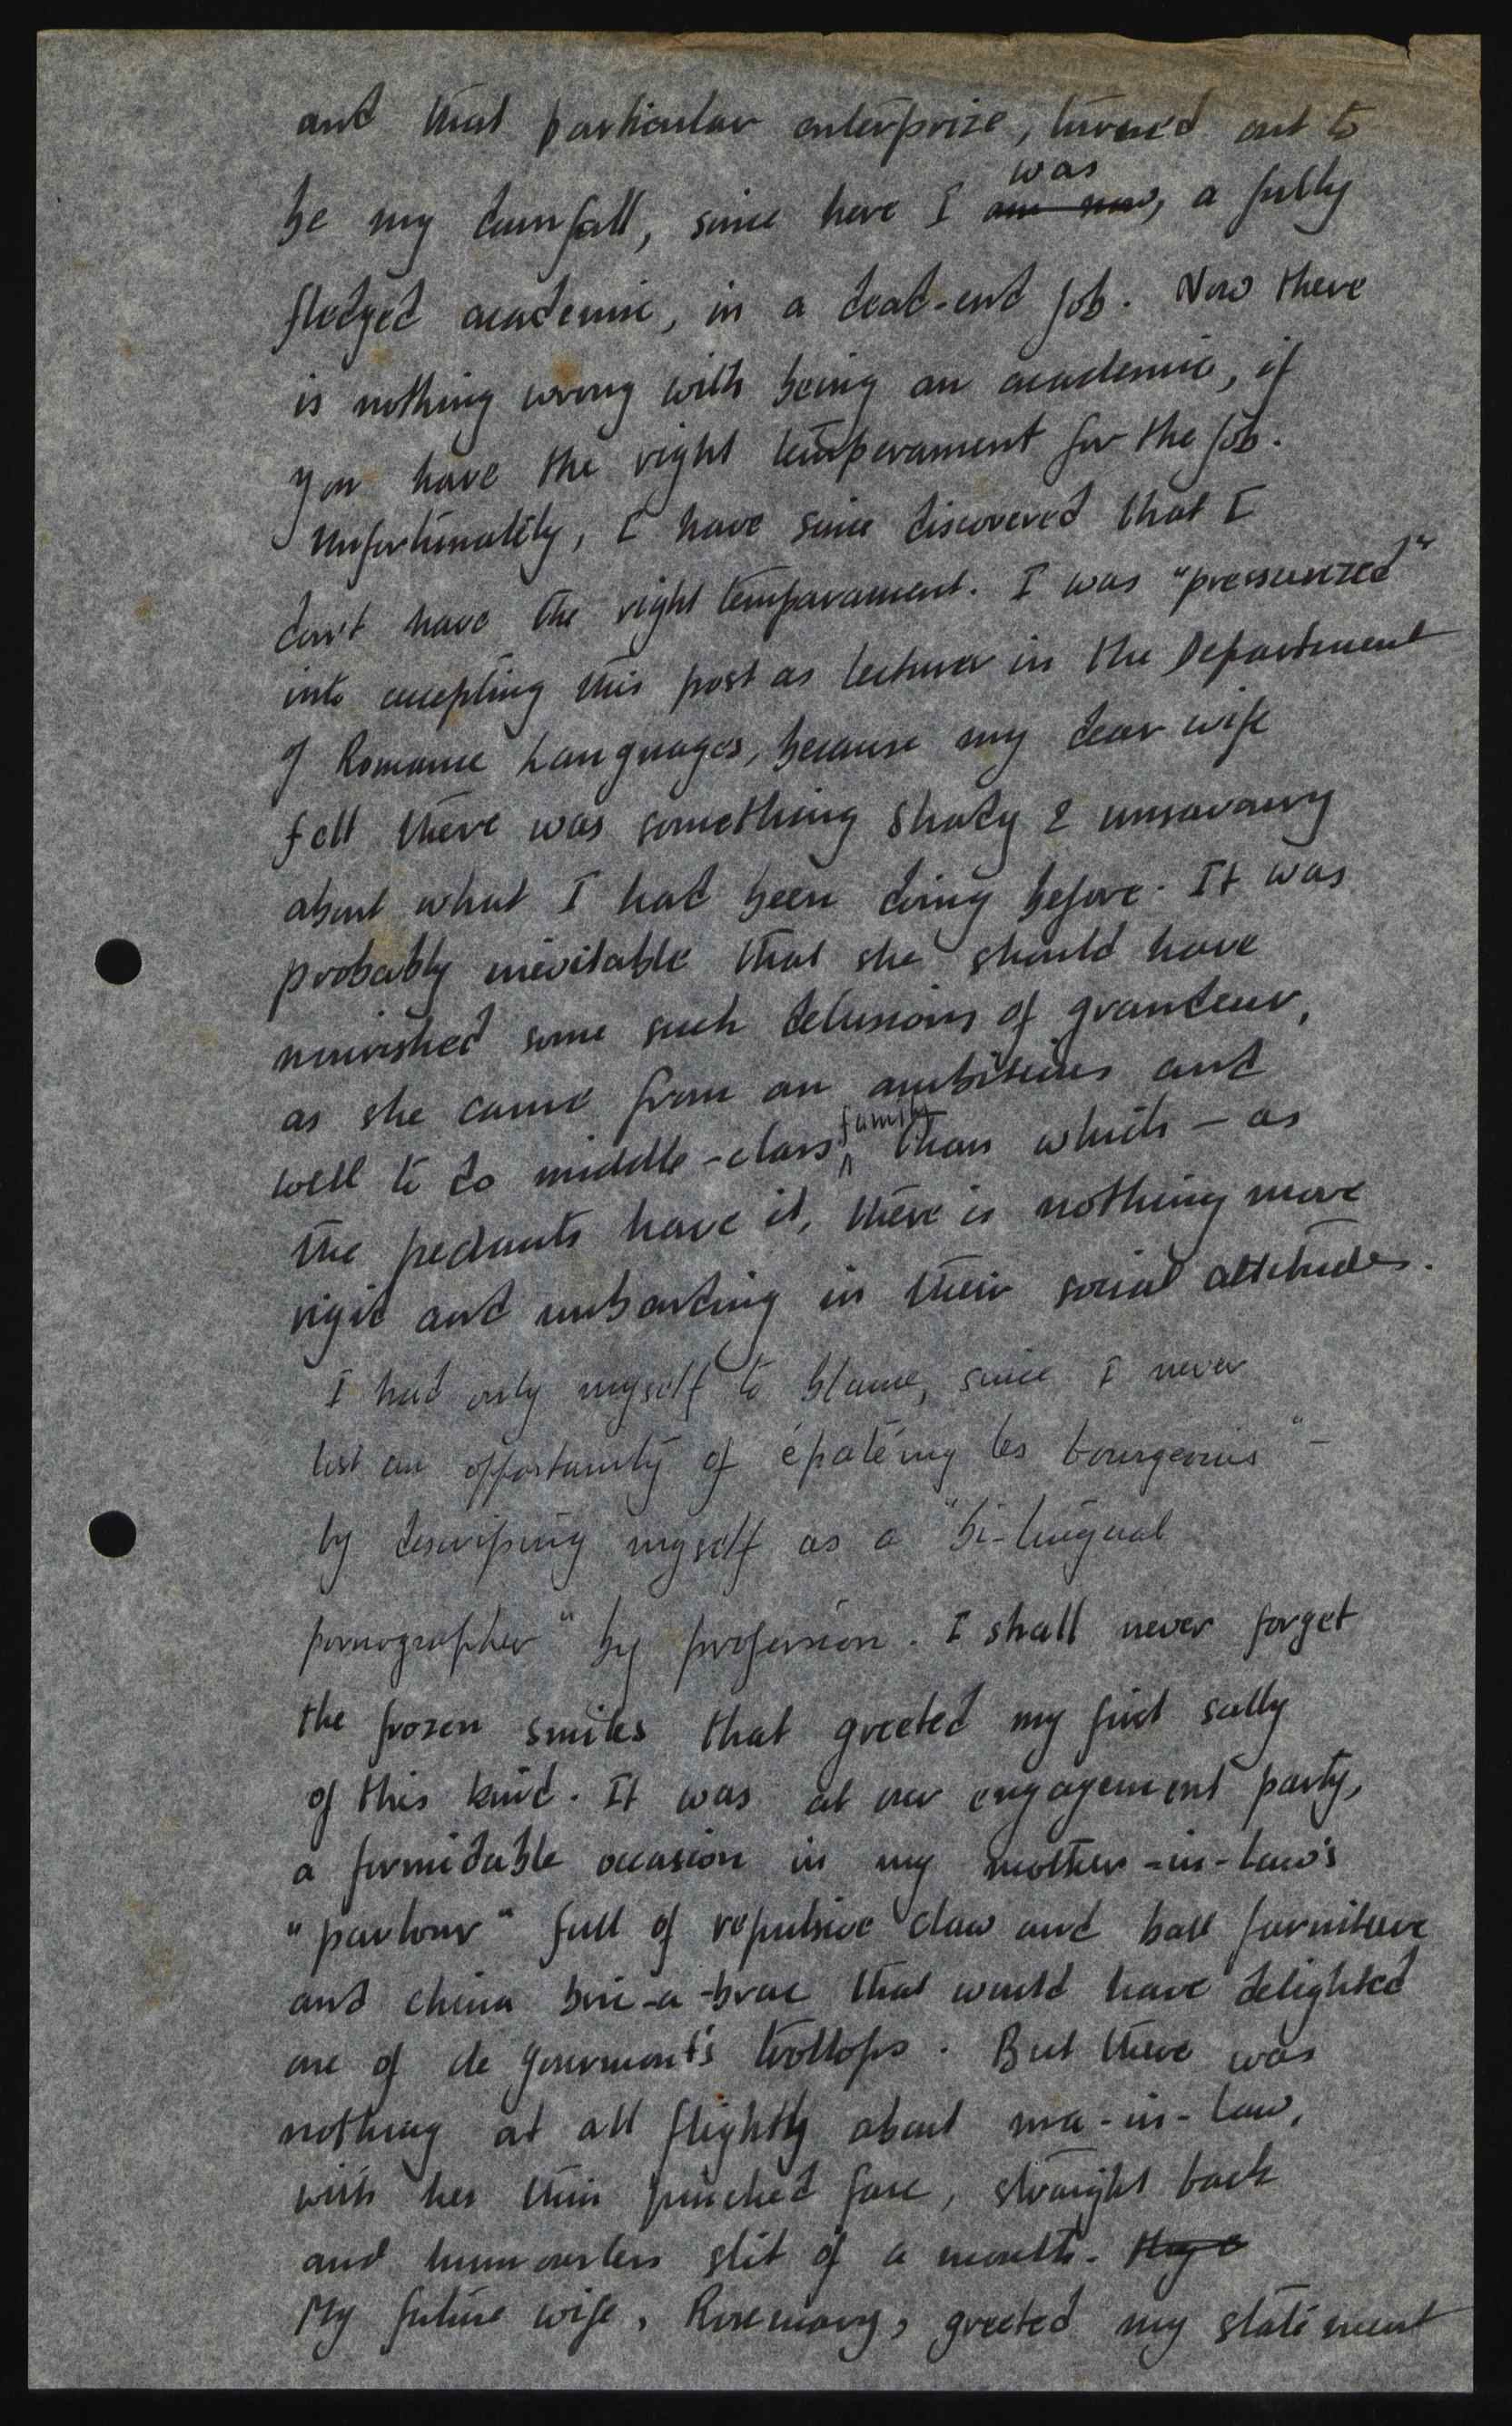 and that particular enterprize, turned out to
be my downfall, since here I was am now, a fully
fledged academic, in a dead-end job. Now there
is nothing wrong with being an academic, if
you have the right temperament for the job.
Unfortunately, I have since discovered that I
don't have the right temparament. I was "pressurized"
into accepting this post as lecturer in the Department
of Romance Languages, because my dear wife
felt there was something shady & unsavoury
about what I had been doing before. It was
probably inevitable that she should have
nourished some such delusions of grandeur,
as she came from an ambitious and
well to do middle-class family than which - as
the pedants have it, there is nothing more
rigid and unbending in their social attitudes.
I had only myself to blame, since I never
lost an opportunity of épatéing les bourgeois" -
by descriping myself as a "bi-lingual
pornographer" by profession. I shall never forget
the frozen smiles that greeted my first sally
of this kind. It was at our engagement party,
a formidable occasion in my mother-in-law's
"parlour" full of repulsive claw and ball furniture
and china bric-a-brac that would have delighted
one of de Gourmont's trollops. But there was
nothing at all flighty about ma-in-law,
with her thin pinched face, straight back
and humourless slit of a mouth.
My future wife, Rosemary, greeted my statement